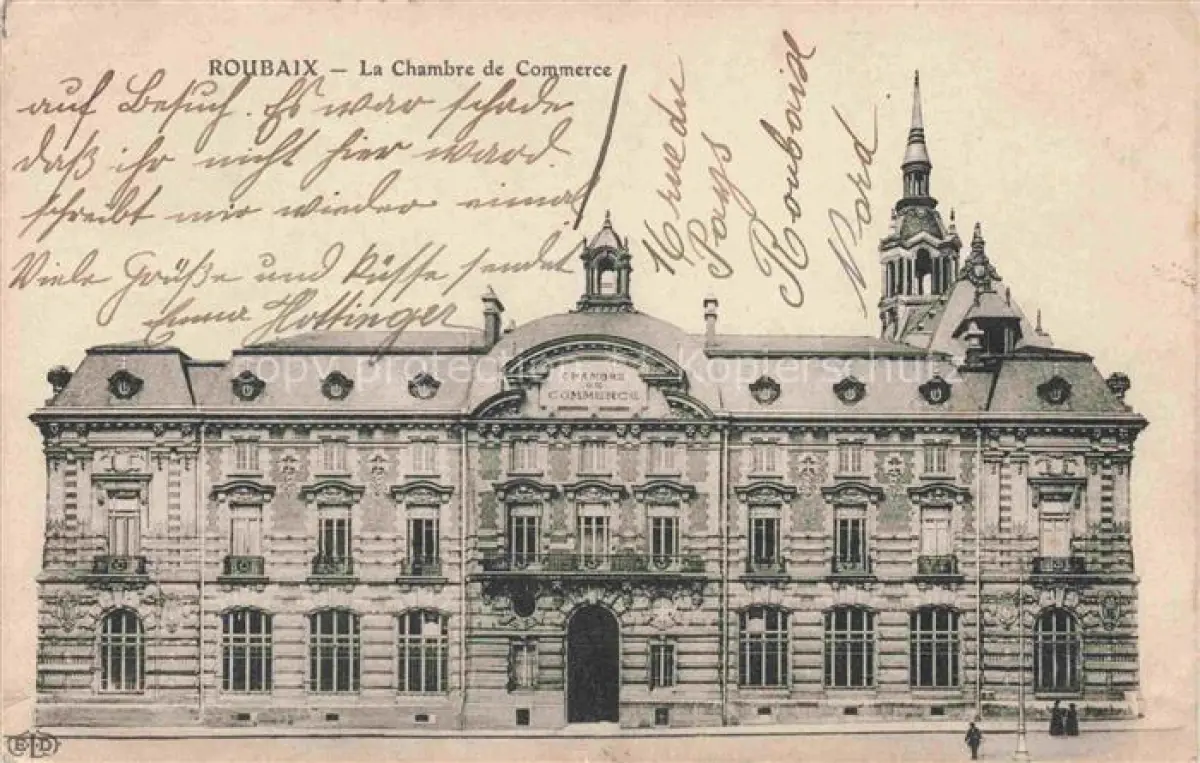 ROUBAIX – La Chambre de Commerce
auf Besuch. Es war schade
daß ihr nicht hier ward.
schreibt mir wieder einmal
Viele Grüße und Küsse sendet
Hottinger
16 rue du
Pays
Roubaix
Nord
CHAMBRE
DE
COMMERCE
copy protection watermark Kopierschutz
ELD